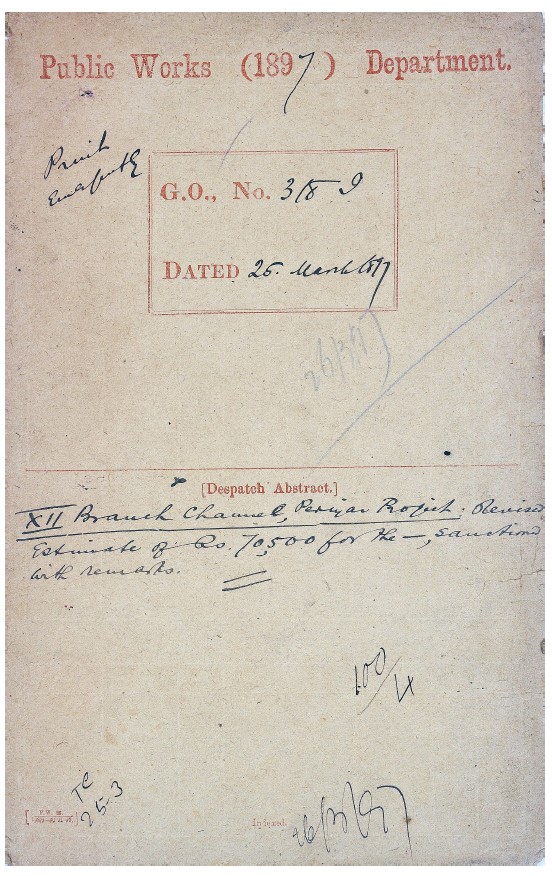 Public Works (1897) Department.
Print
G.O., No. 318 I
DATED 25. March 1897
26/3/97
[Despatch Abstract.]
XII Branch Channel, Periyar Project: Revised
Estimate of Rs. 70,500 for the —, Sanctioned
with remarks.
100/
25-3
Indexed.
26/3/97